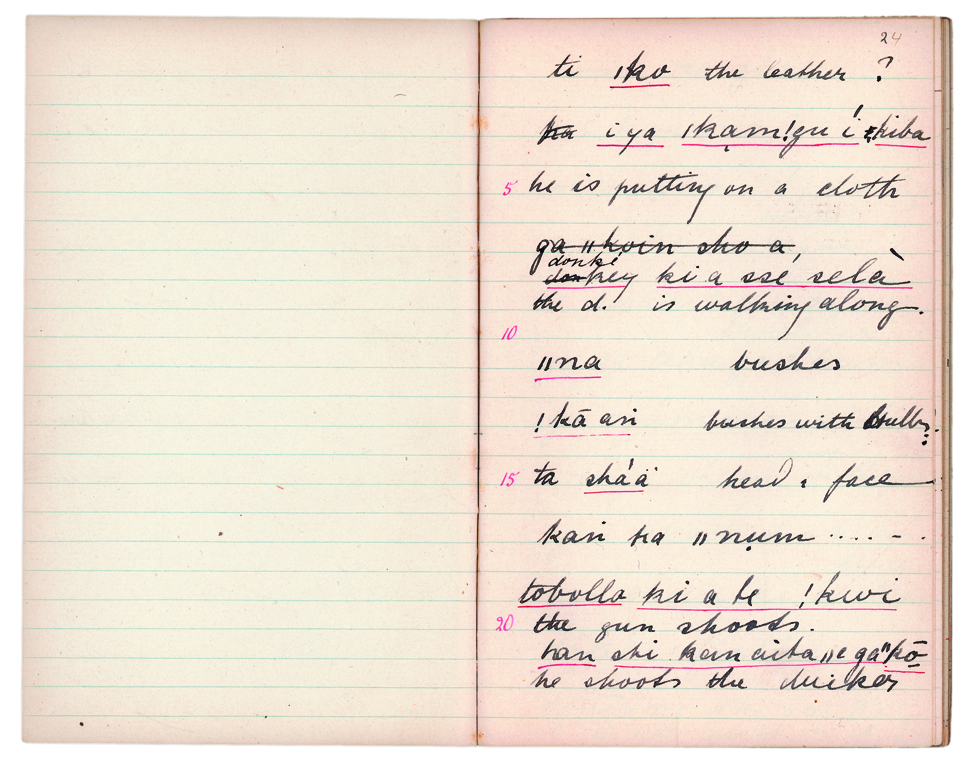 24
ti ǀko the leather ?
i ya ǀkam!gu í kiba
5 he is putting on a cloth
ga ǁkoin sho a,
donké
donkey ki a ssé selà
the d. is walking along.
10
ǁna bushes
!kā an bushes with
15 ta shá'ä head, face
kan ha ǁnum .... - .
tobollo ki a te !kwi
20 the gun shoots.
han shi
he shoots the duiker